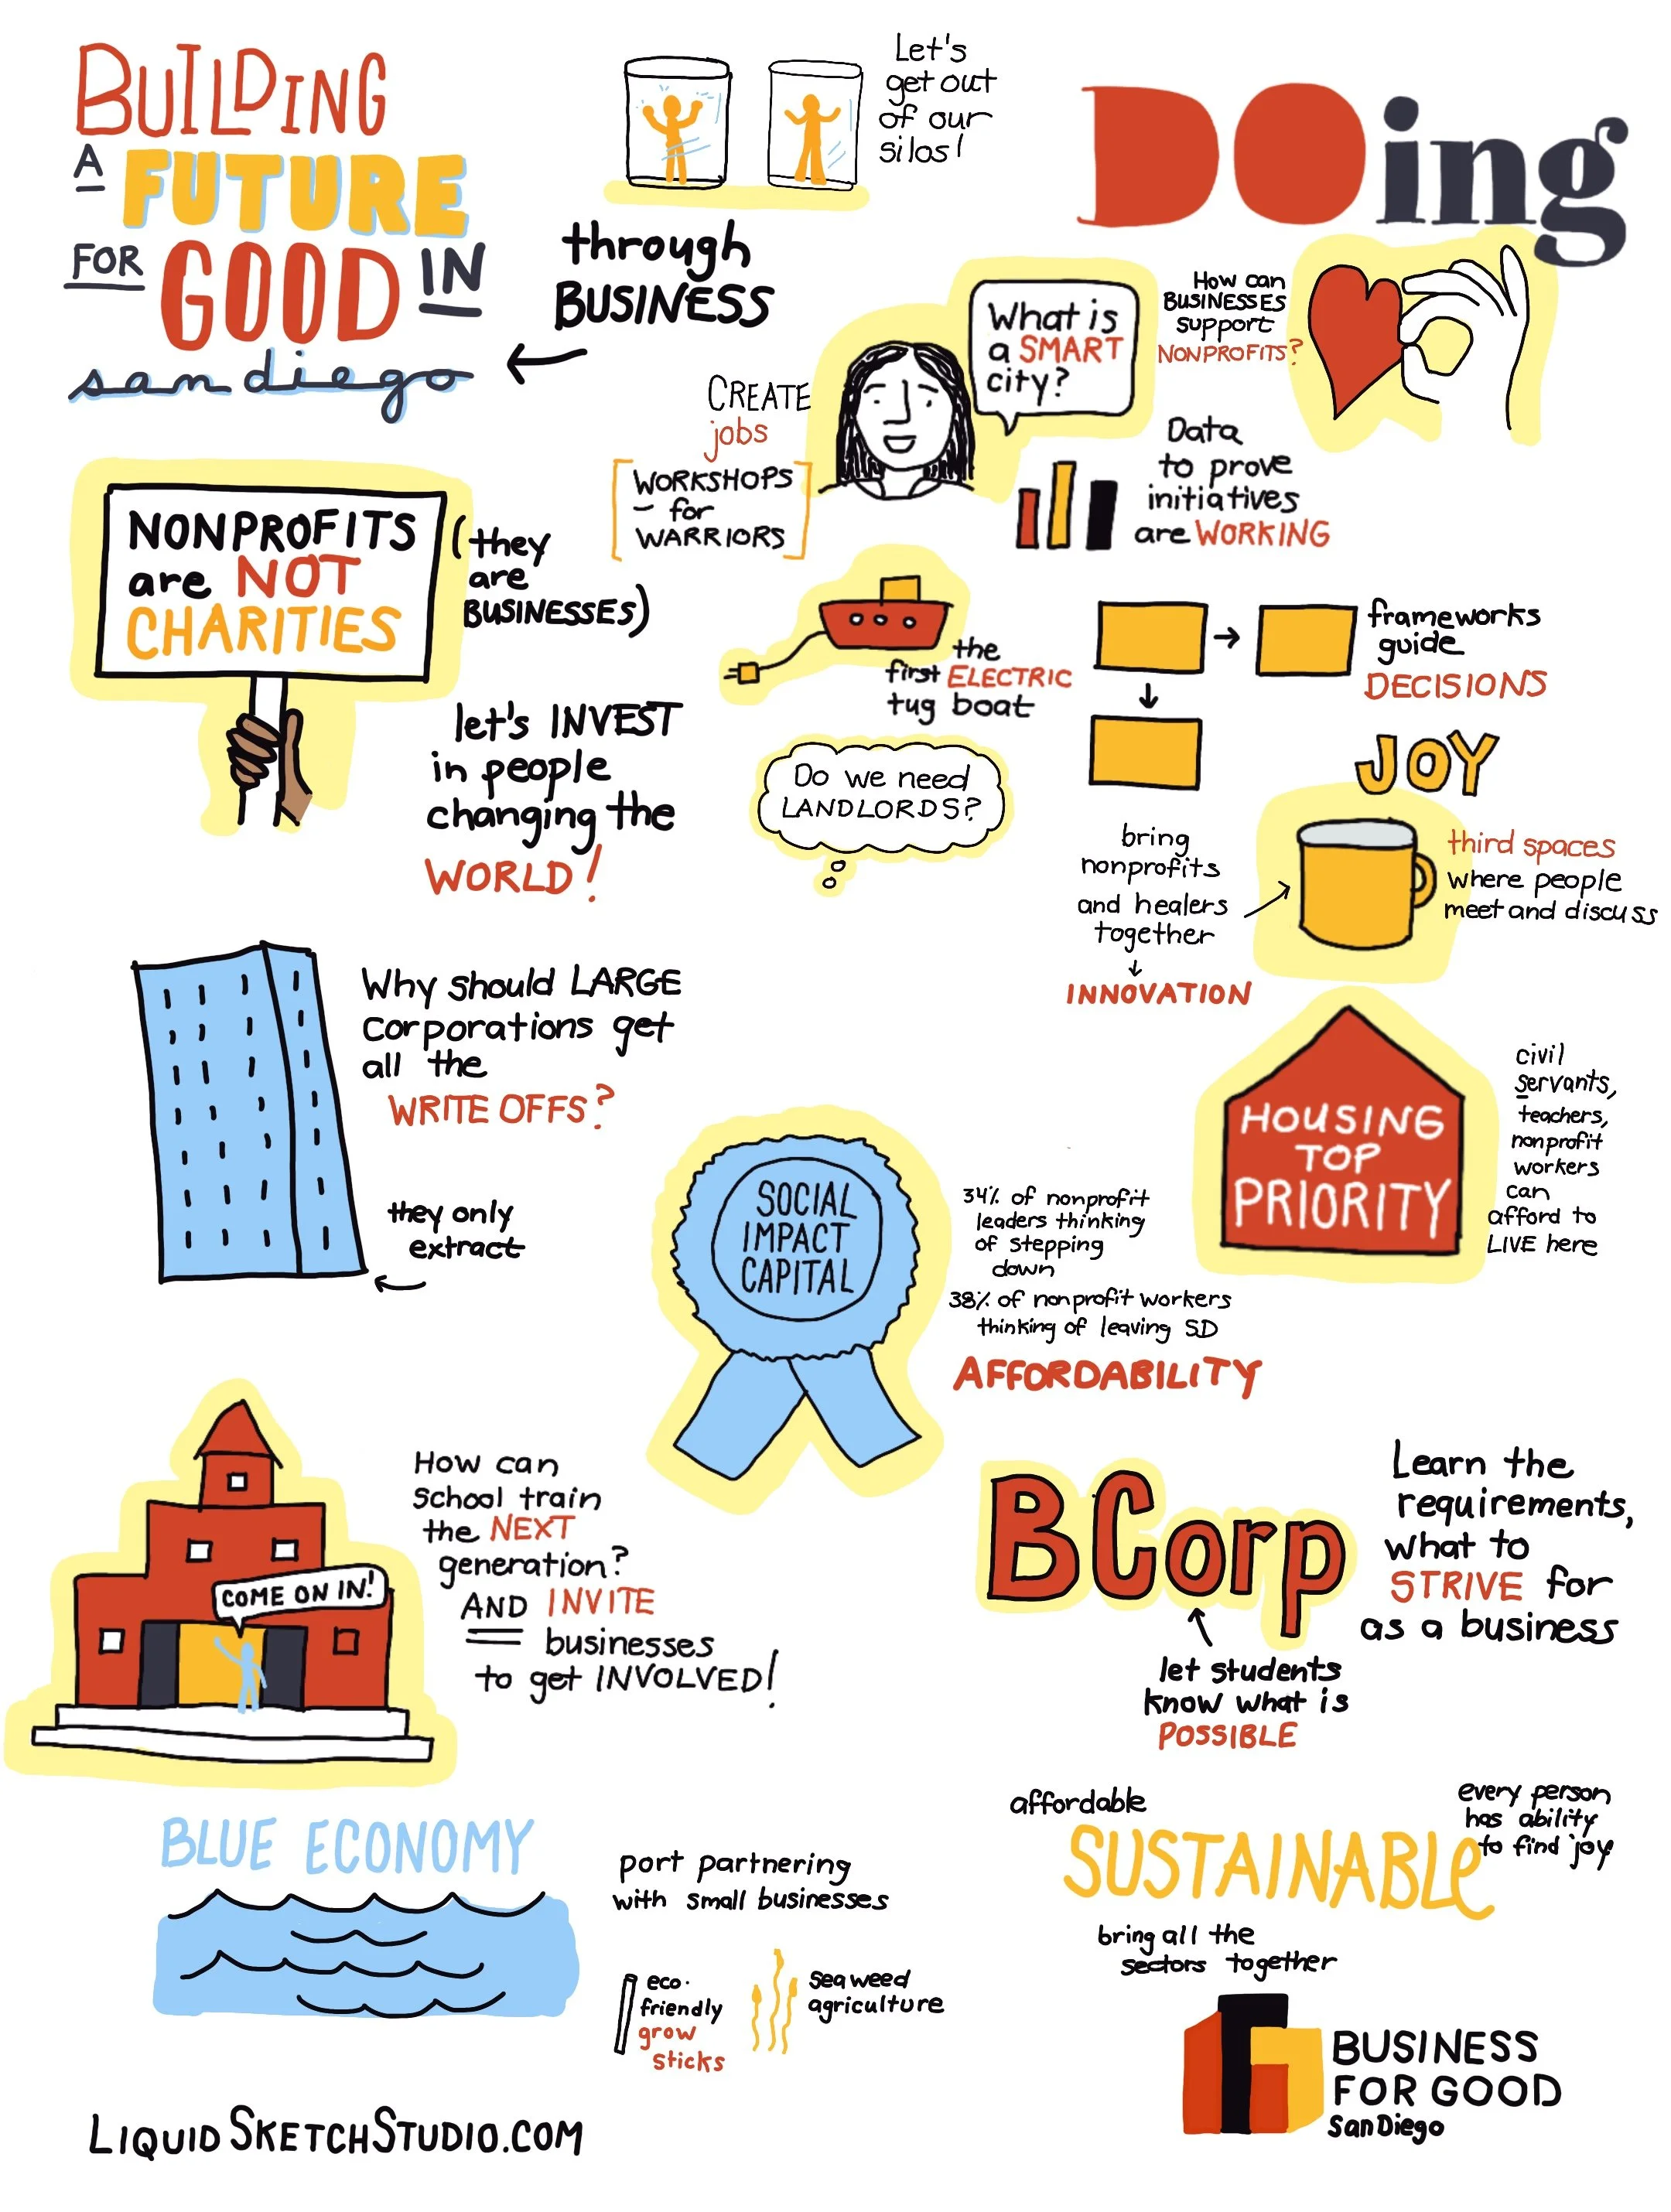 BUILDING
A
FUTURE
FOR GOOD IN
san diego
through
BUSINESS
Let's
get out
of our
silos!
DOing
What is
a SMART
city?
How can
BUSINESSES
support
NONPROFITS?
CREATE
jobs
WORKSHOPS
for
WARRIORS
Data
to prove
initiatives
are WORKING
NONPROFITS
are NOT
CHARITIES
(they
are
BUSINESSES)
let's INVEST
in people
changing the
WORLD!
the
first ELECTRIC
tug boat
frameworks
guide
DECISIONS
Do we need
LANDLORDS?
JOY
bring
nonprofits
and healers
together
INNOVATION
third spaces
where people
meet and discuss
Why should LARGE
corporations get
all the
WRITE OFFS?
they only
extract
SOCIAL
IMPACT
CAPITAL
34% of nonprofit
leaders thinking
of stepping
down
38% of nonprofit workers
thinking of leaving SD
AFFORDABILITY
HOUSING
TOP
PRIORITY
civil
servants,
teachers,
nonprofit
workers
can
afford to
LIVE here
COME ON IN!
How can
school train
the NEXT
generation?
AND INVITE
businesses
to get INVOLVED!
BCorp
Learn the
requirements,
what to
STRIVE for
as a business
let students
know what is
POSSIBLE
BLUE ECONOMY
port partnering
with small businesses
eco-
friendly
grow
sticks
seaweed
agriculture
affordable
SUSTAINABLe
every person
has ability
to find joy
bring all the
sectors together
BUSINESS
FOR GOOD
San Diego
LIQUIDSKETCHSTUDIO.COM